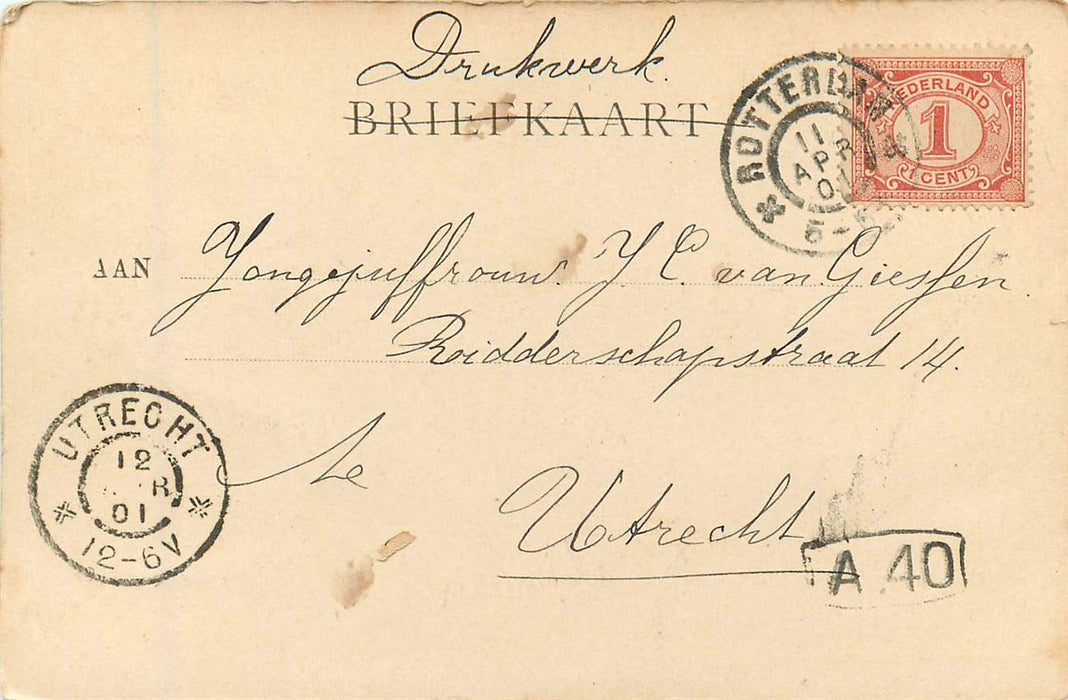 Drukwerk.
BRIEFKAART
ROTTERDAM
11 APR 01
5-6
NEDERLAND
1
1 CENT
AAN Jongejuffrouw. J C. van Giessen.
Ridderschapstraat 14.
Te
Utrecht
UTRECHT
12
R
01
12-6V
A 40